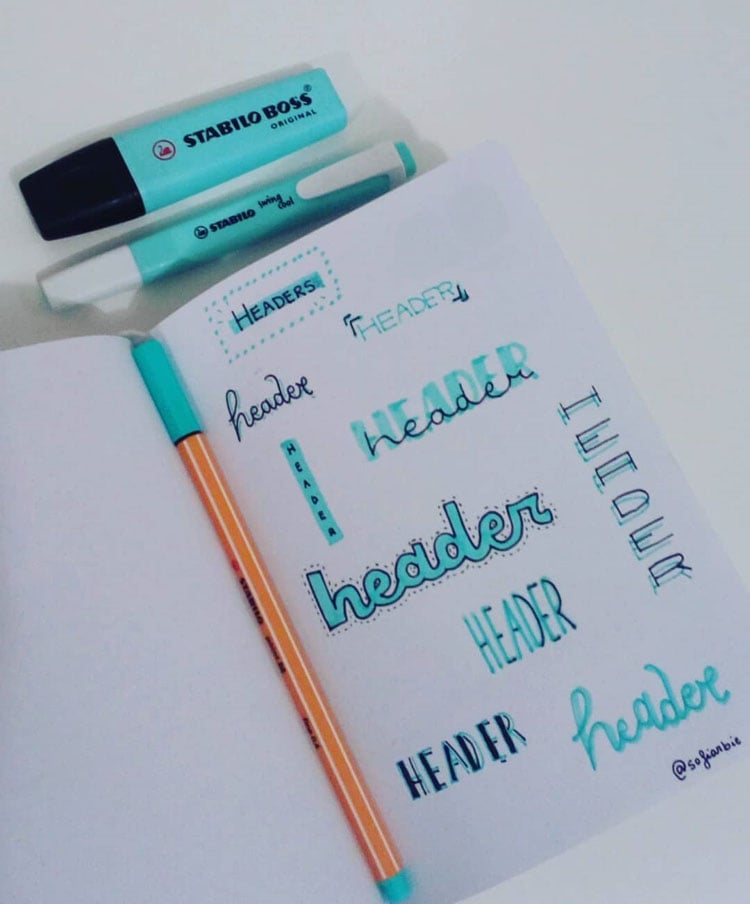 STABILO BOSS®
ORIGINAL
STABILO swing cool
HEADERS
HEADER
header
HEADER
header
HEADER
HEADER
header
HEADER
HEADER
header
@sofiarbie
STABILO